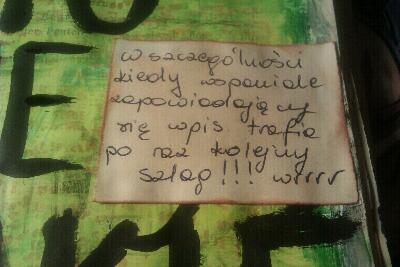 w szczególności
kiedy wspaniale
zapowiadający
się wpis trafia
po raz kolejny
szlag!!! wrrrr